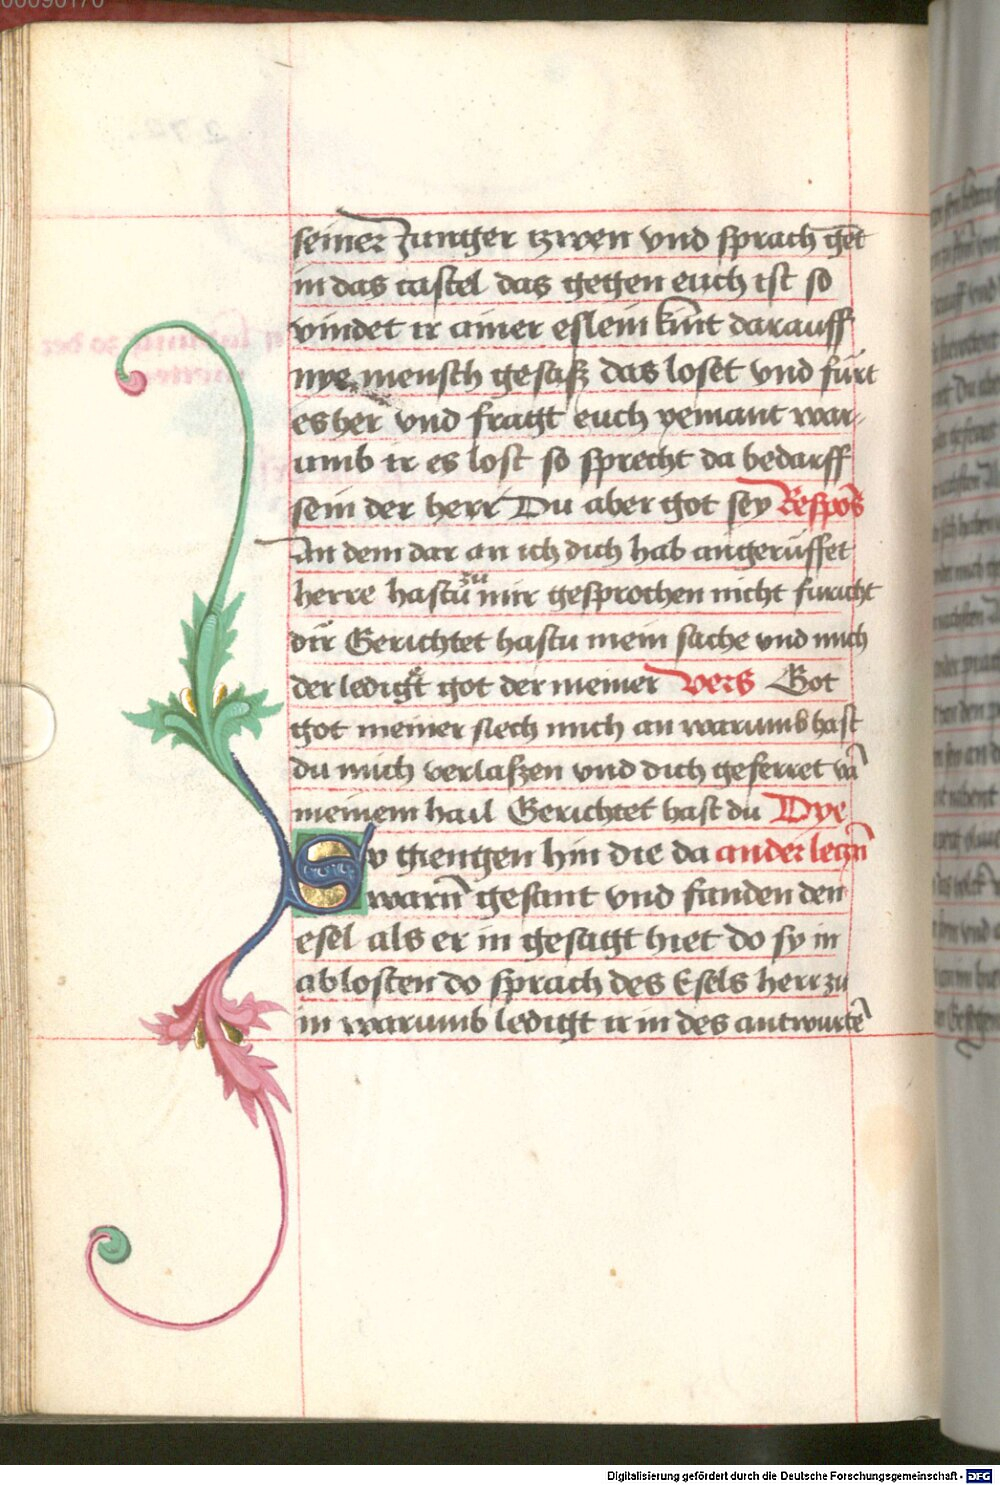 seiner Junger tzwen vnd sprach get
in das castel das gegen euch ist so
vindet ir ainer eslein kint darauff
nye mensch gesasz das loset vnd fürt
es her vnd fragt euch yemant war-
umb ir es lost so sprecht da bedarff
sein der herr Du aber got sey Respos
An dem dar an ich dich hab angerüffet
herre hastu zu mir gesprochen nicht furicht
dir Gerichtet hastu mein sache vnd mich
der ledigt got der meiner Vers Got
got meiner siech mich an warumb hast
du mich verlassen vnd dich geferret vā
meinem hail Gerichtet hast du Dye
Sy giengen hin die da ander leczn
warn gesant vnd funden den
esel als er in gesagt hiet do sy in
ablosten do sprach des Esels herr zu
in warumb ledigt ir in des antwurtē
Digitalisierung gefördert durch die Deutsche Forschungsgemeinschaft - DFG